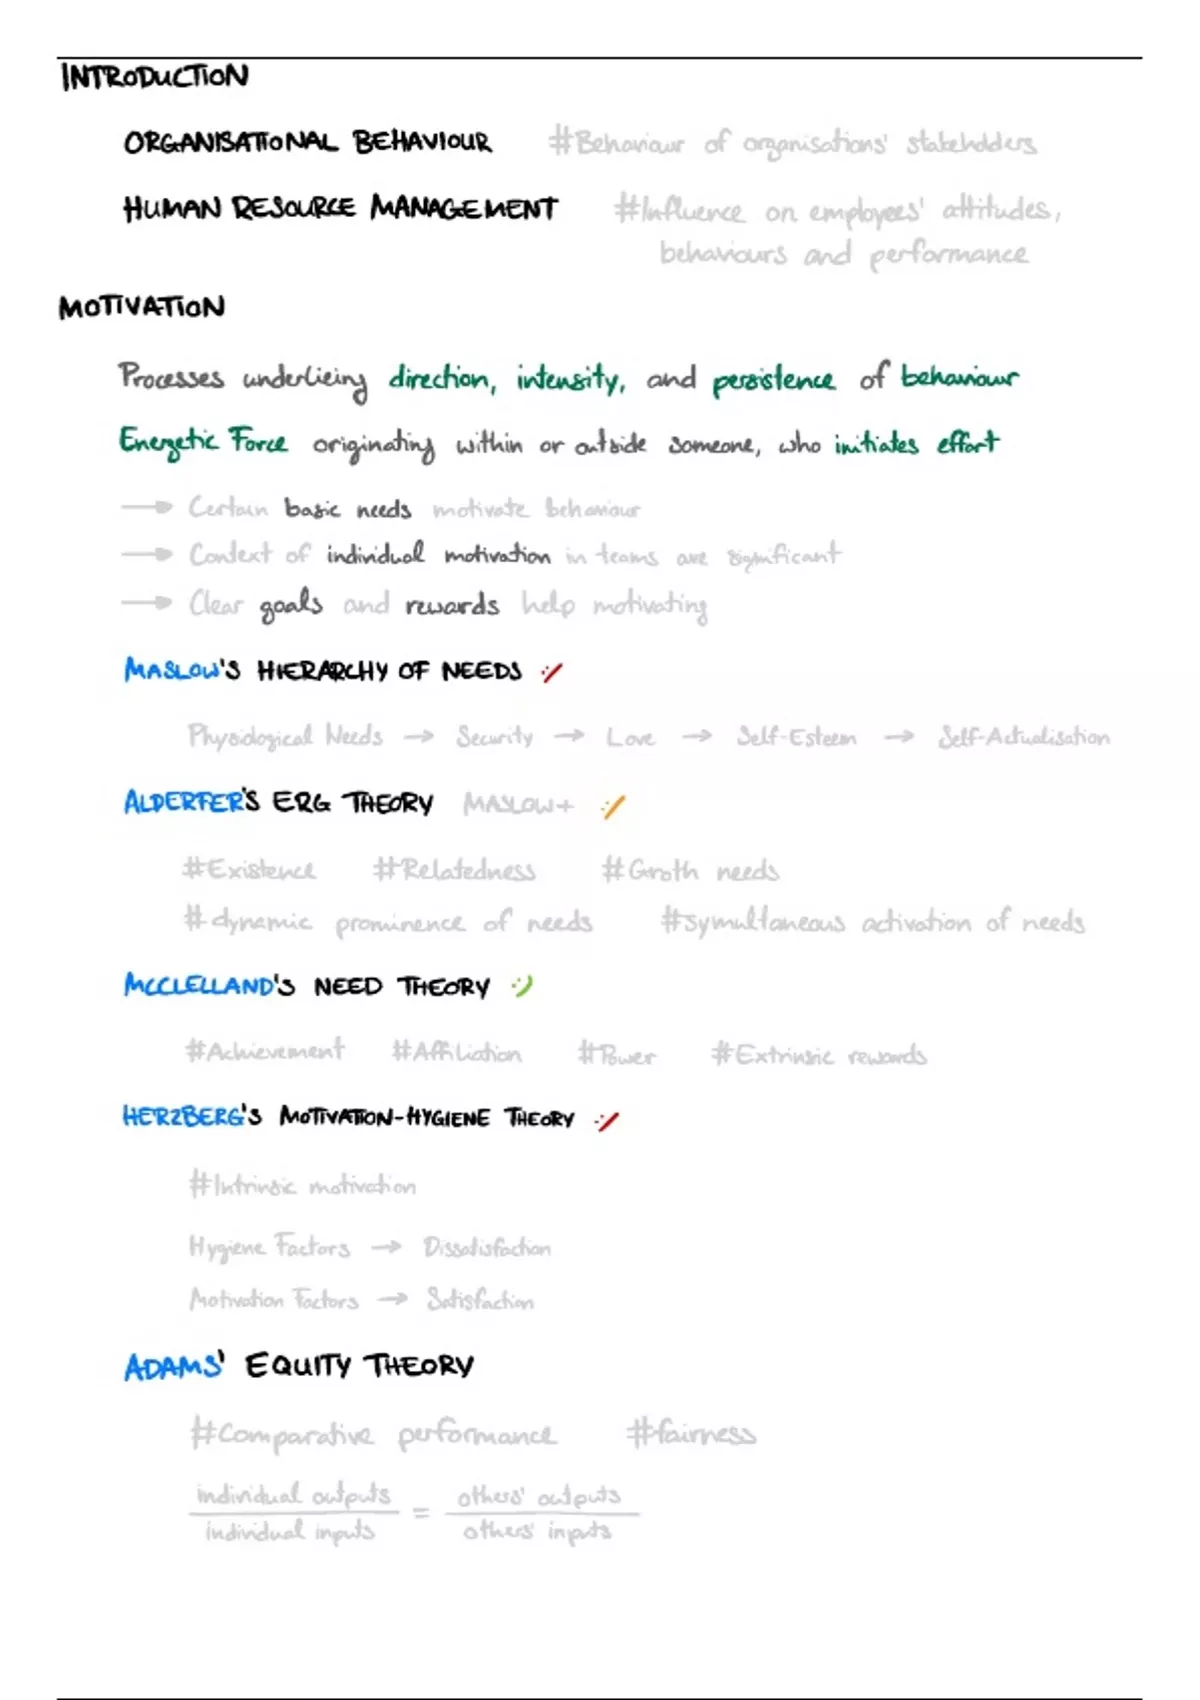 INTRODUCTION
ORGANISATIONAL BEHAVIOUR #Behaviour of organisations' stakeholders
HUMAN RESOURCE MANAGEMENT #Influence on employees' attitudes,
behaviours and performance
MOTIVATION
Processes underlieing direction, intensity, and persistence of behaviour
Energetic Force originating within or outside someone, who initiates effort
→ Certain basic needs motivate behaviour
→ Context of individual motivation in teams are significant
→ Clear goals and rewards help motivating
MASLOW'S HIERARCHY OF NEEDS :/
Physiological Needs → Security → Love → Self-Esteem → Self-Actualisation
ALDERFER'S ERG THEORY MASLOW+ :/
#Existence #Relatedness #Groth needs
#dynamic prominence of needs #symultaneous activation of needs
MCCLELLAND'S NEED THEORY :)
#Achievement #Affiliation #Power #Extrinsic rewards
HERZBERG'S MOTIVATION-HYGIENE THEORY :/
#Intrinsic motivation
Hygiene Factors → Dissatisfaction
Motivation Factors → Satisfaction
ADAMS' EQUITY THEORY
#Comparative performance #fairness
individual outputs = others' outputs
individual inputs others' inputs